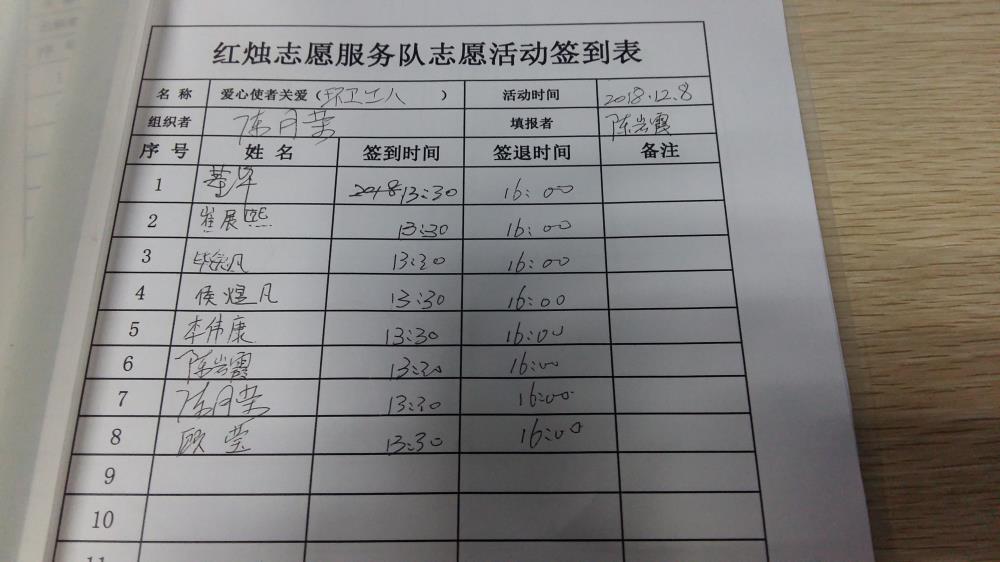 红烛志愿服务队志愿活动签到表
名称 爱心使者关爱（环卫工人） 活动时间 2018.12.8
组织者 陈月荣 填报者 陈岩霞
序号 姓名 签到时间 签退时间 备注
1 13:30 16:00
2 崔展熙 13:30 16:00
3 13:30 16:00
4 侯煜凡 13:30 16:00
5 李伟康 13:30 16:00
6 陈岩霞 13:30 16:00
7 陈月荣 13:30 16:00
8 欧莹 13:30 16:00
9
10
11